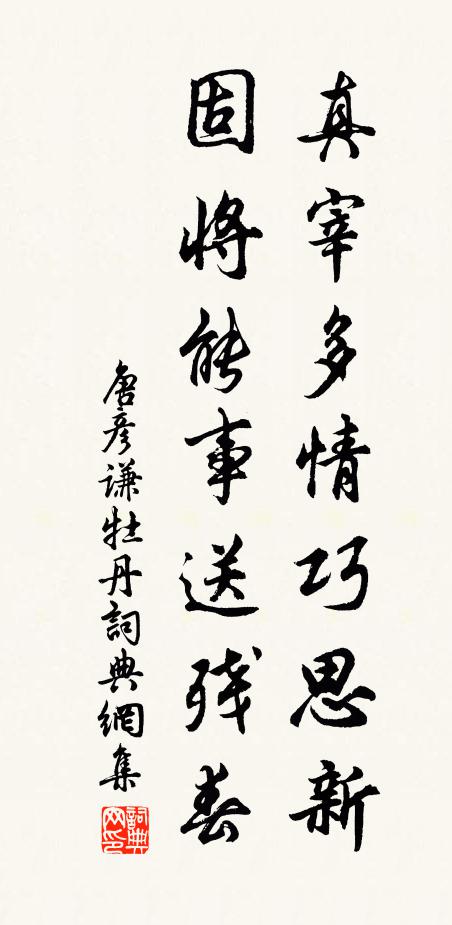 真宰多情巧思新
固将能事送残春
唐彦谦牡丹詞典網集
詞典网印